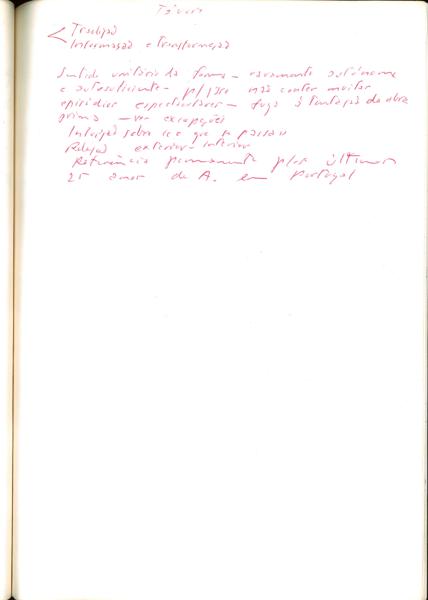 Távora
Tradição
Informação e transformação
Sentido unitário da forma – raramente autónoma
e autosuficiente – p/ isso não conter muitos
episódios espectaculares – fuga à tentação da obra
prima – ver excepções
Intuição sobre o que se passar
Relação exterior-interior
Referência permanente pelos últimos
25 anos de A. em Portugal